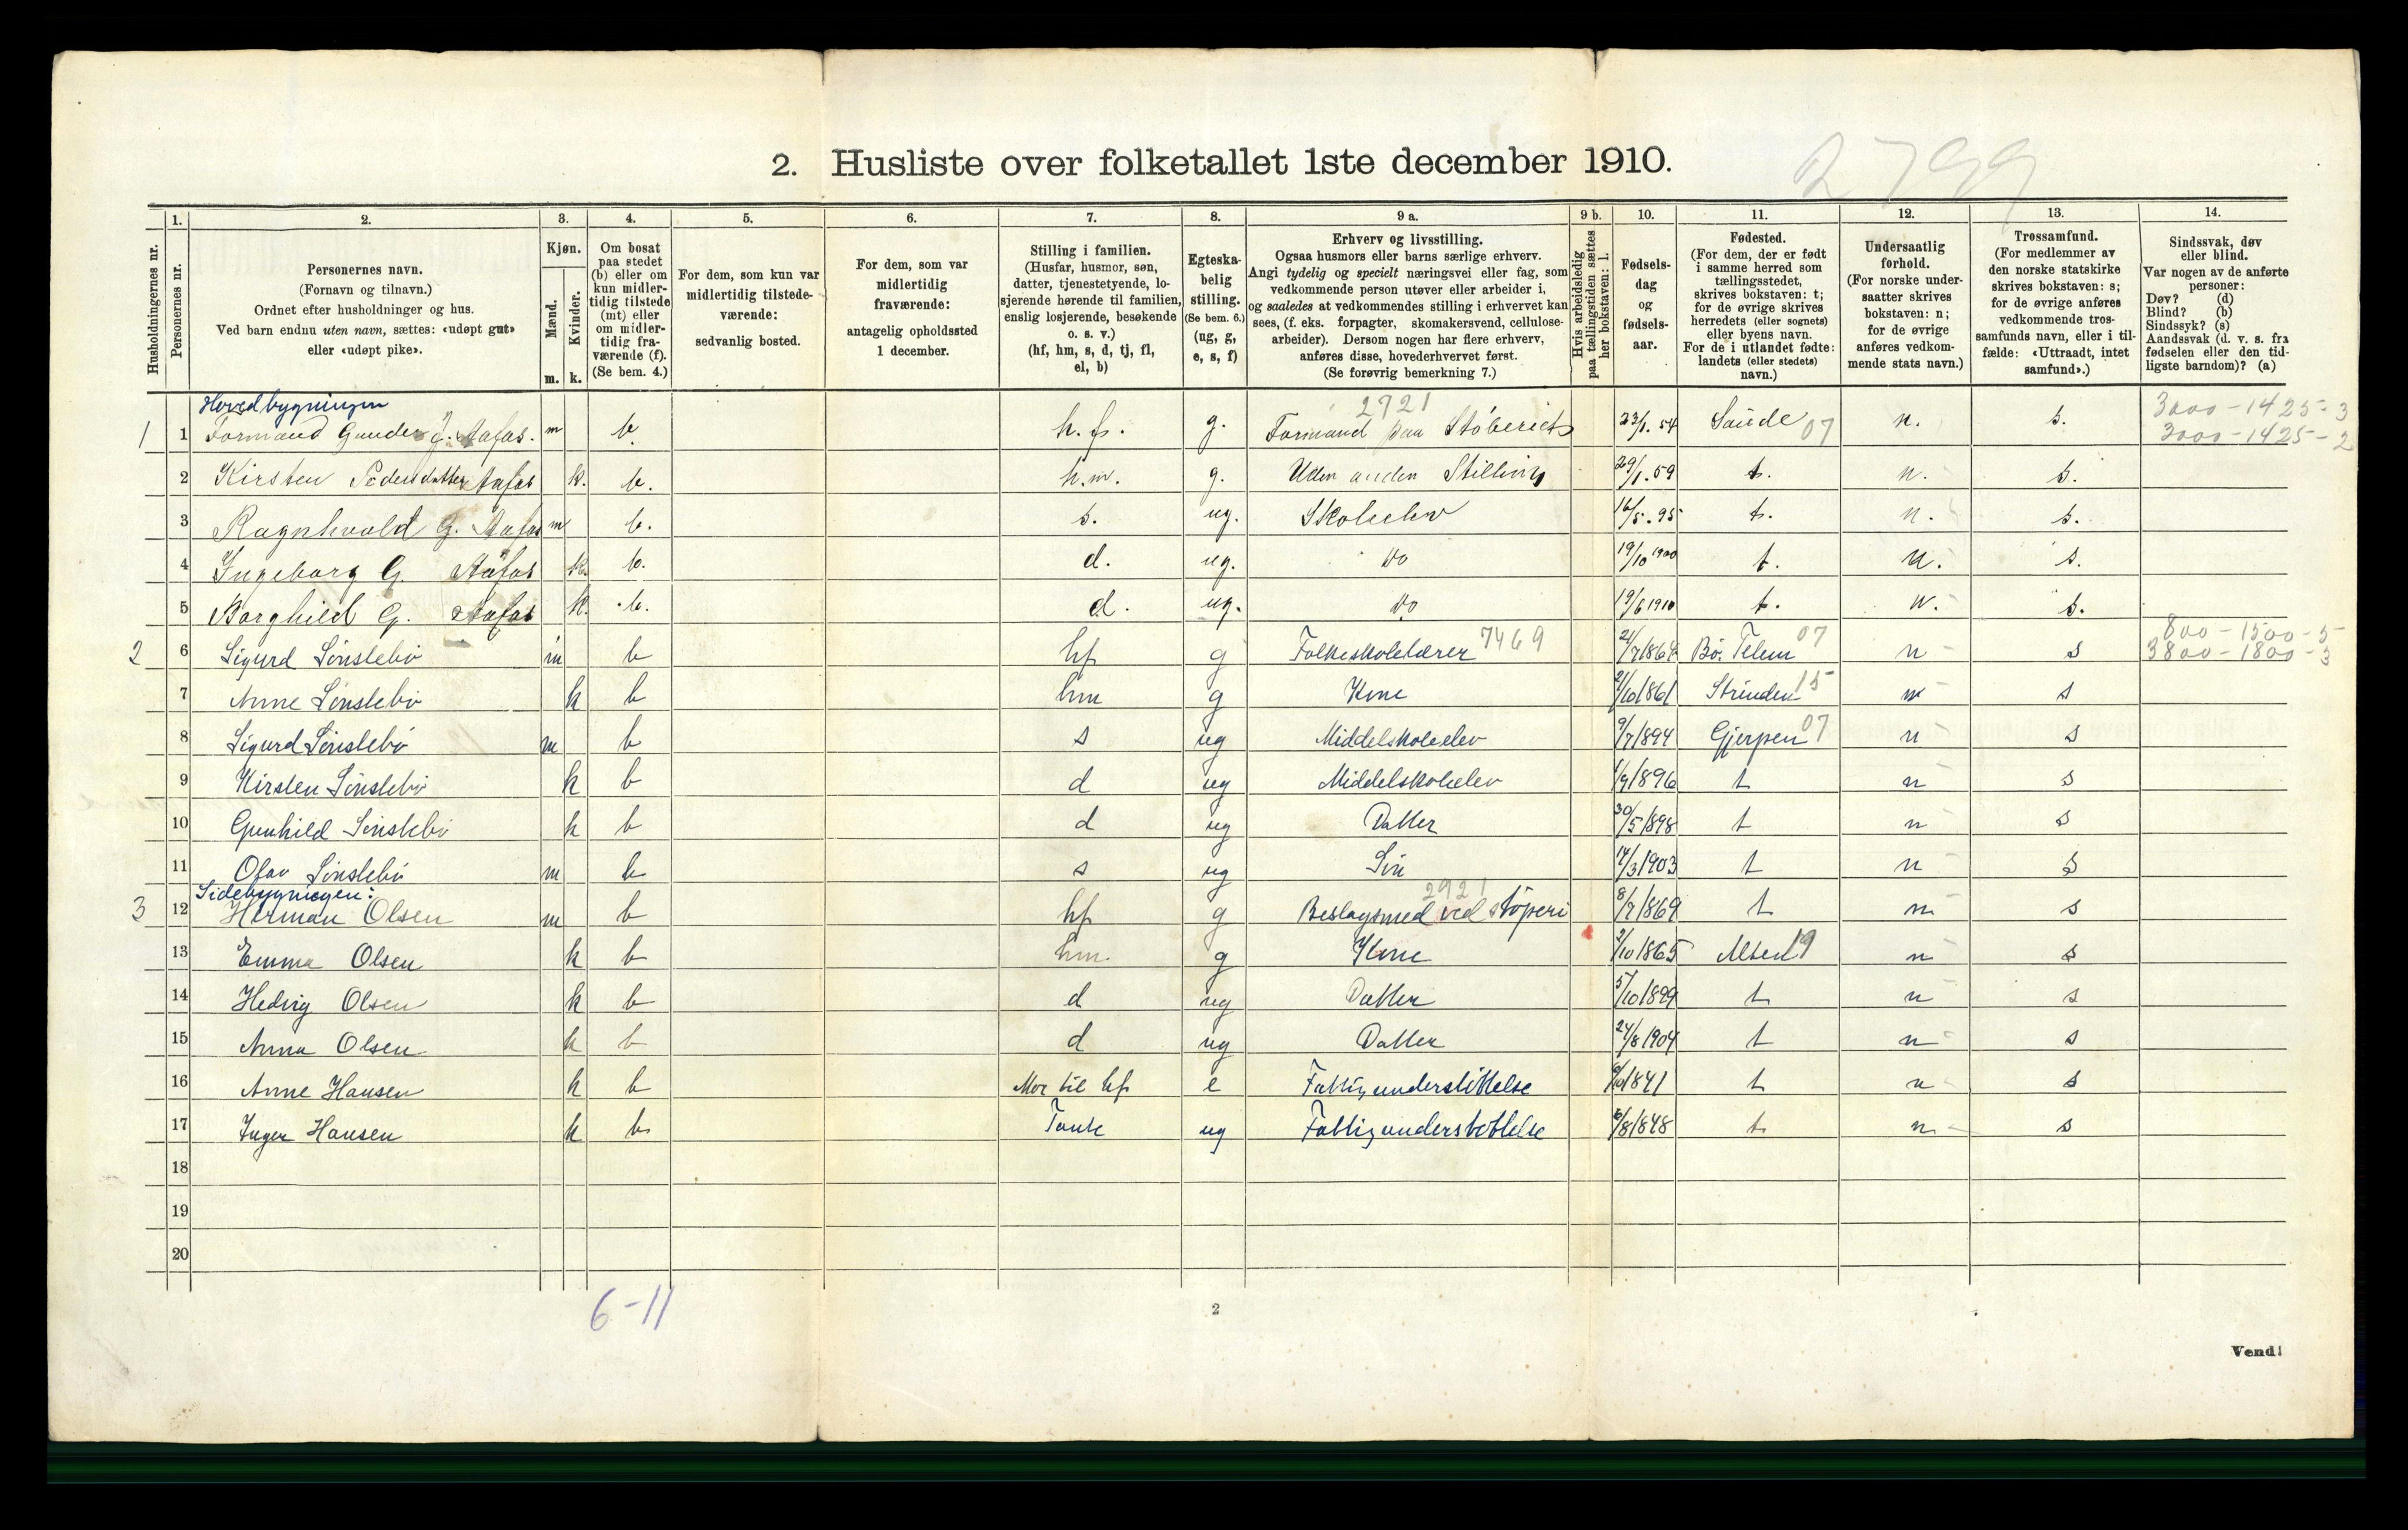 2799
2. Husliste over folketallet 1ste december 1910.
1. 2. 3. 4. 5. 6. 7. 8. 9 a. 9 b. 10. 11. 12. 13. 14.
Husholdningernes nr.
Personernes nr.
Personernes navn.
(Fornavn og tilnavn.)
Ordnet efter husholdninger og hus.
Ved barn endnu uten navn, sættes: «udøpt gut»
eller «udøpt pike».
Kjøn.
Mænd.
Kvinder.
m. k.
Om bosat
paa stedet
(b) eller om
kun midler-
tidig tilstede
(mt) eller
om midler-
tidig fra-
værende (f).
(Se bem. 4.)
For dem, som kun var
midlertidig tilstede-
værende:
sedvanlig bosted.
For dem, som var
midlertidig
fraværende:
antagelig opholdssted
1 december.
Stilling i familien.
(Husfar, husmor, søn,
datter, tjenestetyende, lo-
sjerende hørende til familien,
enslig losjerende, besøkende
o. s. v.)
(hf, hm, s, d, tj, fl,
el, b)
Egteska-
belig
stilling.
(Se bem. 6.)
(ug, g,
e, s, f)
Erhverv og livsstilling.
Ogsaa husmors eller barns særlige erhverv.
Angi tydelig og specielt næringsvei eller fag, som
vedkommende person utøver eller arbeider i,
og saaledes at vedkommendes stilling i erhvervet kan
sees, (f. eks. forpagter, skomakersvend, cellulose-
arbeider). Dersom nogen har flere erhverv,
anføres disse, hovederhvervet først.
(Se forøvrig bemerkning 7.)
Hvis arbeidsledig
paa tællingstiden sættes
her bokstaven: l.
Fødsels-
dag
og
fødsels-
aar.
Fødested.
(For dem, der er født
i samme herred som
tællingsstedet,
skrives bokstaven: t;
for de øvrige skrives
herredets (eller sognets)
eller byens navn.
For de i utlandet fødte:
landets (eller stedets)
navn.)
Undersaatlig
forhold.
(For norske under-
saatter skrives
bokstaven: n;
for de øvrige
anføres vedkom-
mende stats navn.)
Trossamfund.
(For medlemmer av
den norske statskirke
skrives bokstaven: s;
for de øvrige anføres
vedkommende tros-
samfunds navn, eller i til-
fælde: «Uttraadt, intet
samfund».)
Sindssvak, døv
eller blind.
Var nogen av de anførte
personer:
Døv? (d)
Blind? (b)
Sindssyk? (s)
Aandssvak (d. v. s. fra
fødselen eller den tid-
ligste barndom)? (a)
Hovedbygningen 2721 3000-1425-3
1 1 Formand Gunder J. Aafos. m b. h.f. g. Formand paa 23/1.54 Saude 07 n. s. 3000-1425-2
2 Kirsten Pedersdatter Aafos k. b. h.m. g. Uden anden Stilling 29/1.59 t. n. s.
3 Ragnhvald G. Aafos m b. s. ug. Skoleelev 16/5.95 t. n. s.
4 Ingeborg G. Aafos k. b. d. ug. Do 19/10 1900 t. n. s.
5 Borghild G. Aafos k. b. d. ug. Do 19/6 1910 t. n. s.
800-1500-5
2 6 Sigurd Lønslebø m b hf g Folkeskolelærer 7469 2/7 1864 Bø. Telem 07 n s 3800-1800-3
7 Anne Lønslebø k b hm g Kone 2/10 1861 Strinden 15 n s
8 Sigurd Lønslebø m b s ug Middelskoleelev 9/7 1894 Gjerpen 07 n s
9 Kirsten Lønslebø k b d ug Middelskoleelev 1/9 1896 t n s
10 Gunhild Lønslebø k b d ug Datter 30/5 1898 t n s
11 Olav Lønslebø m b s ug Søn 14/3 1903 t n s
Sidebygningen: 2921
3 12 Herman Olsen m b hf g Beslagsmed ved støperi 8/7 1869 t n s
13 Emma Olsen k b hm g Kone 2/10 1865 19 n s
14 Hedvig Olsen k b d ug Datter 5/10 1899 t n s
15 Anna Olsen k b d ug Datter 24/8 1904 t n s
16 Anne Hansen k b Mor til hf e Fattigunderstøttelse 1841 t n s
17 Inger Hansen k b Tante ug Fattigunderstøttelse 6/8 1848 t n s
18
19
20
6-11
2
Vend!